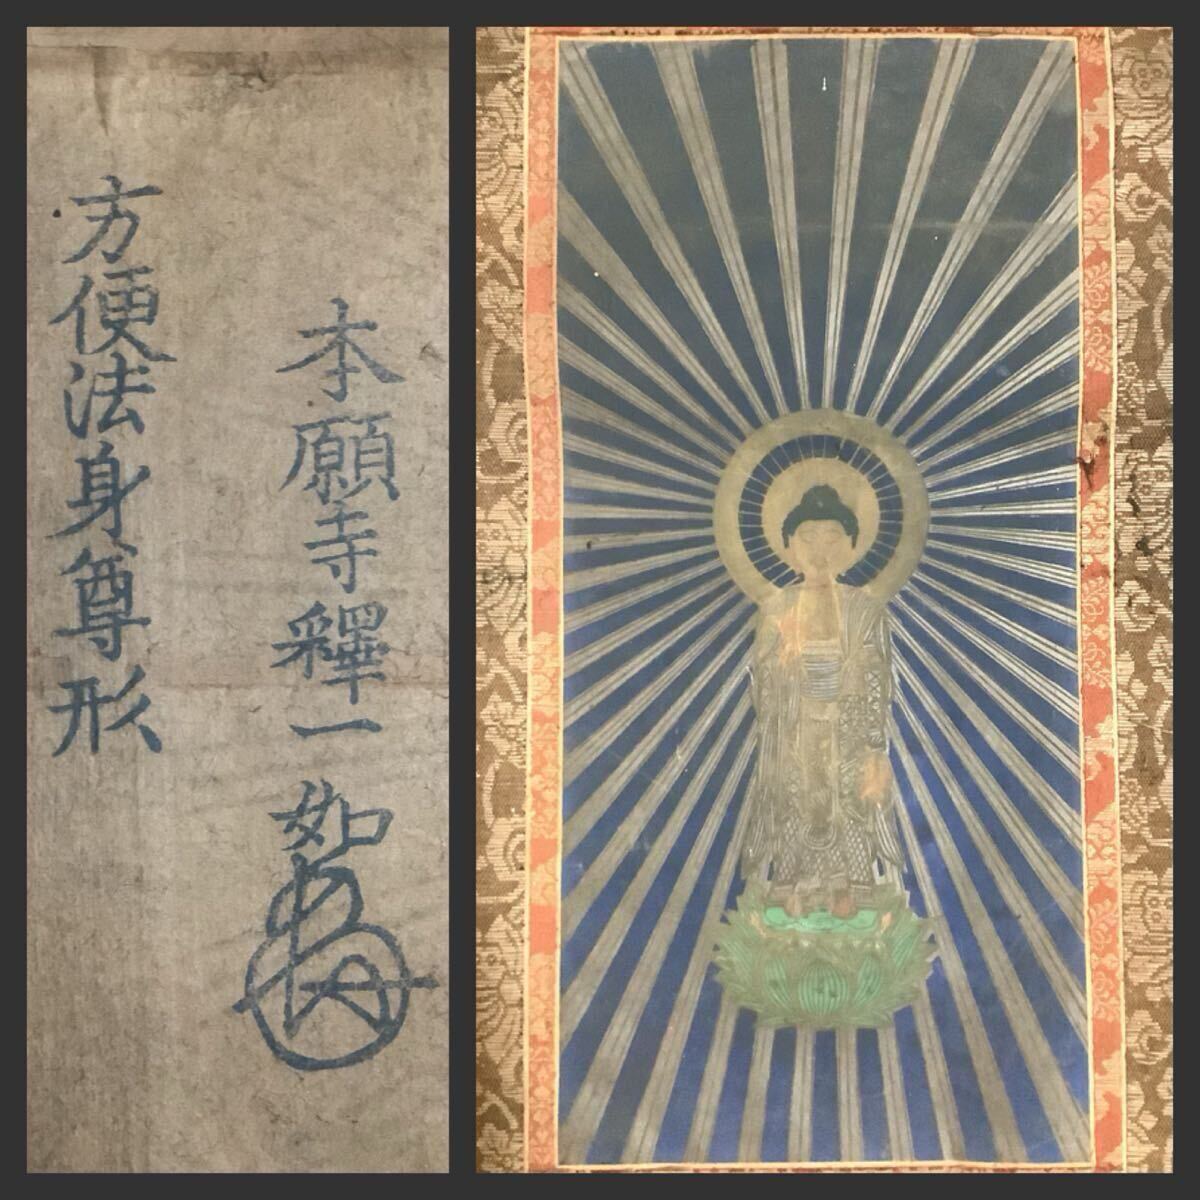 本願寺釋一如
方便法身尊形